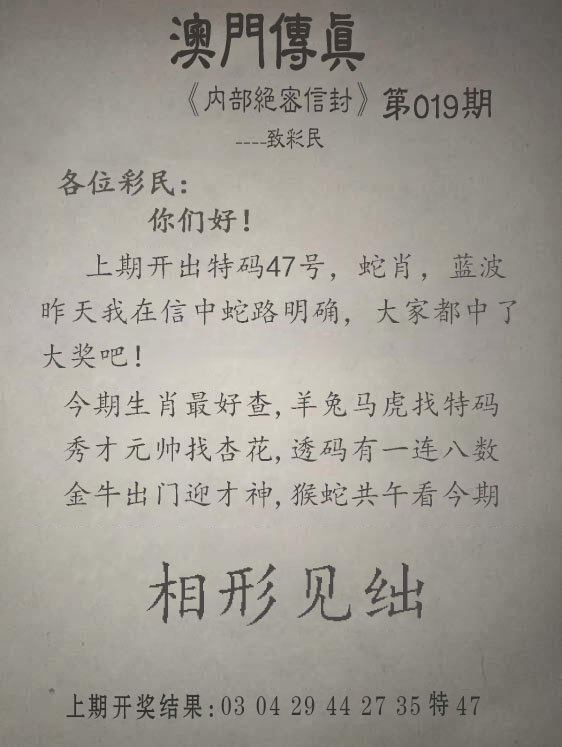 澳門傳眞
《内部絕密信封》第019期
----致彩民
各位彩民：
你们好！
上期开出特码47号，蛇肖，蓝波
昨天我在信中蛇路明确，大家都中了
大奖吧！
今期生肖最好查,羊兔马虎找特码
秀才元帅找杏花,透码有一连八数
金牛出门迎才神,猴蛇共午看今期
相形见绌
上期开奖结果:03 04 29 44 27 35 特 47